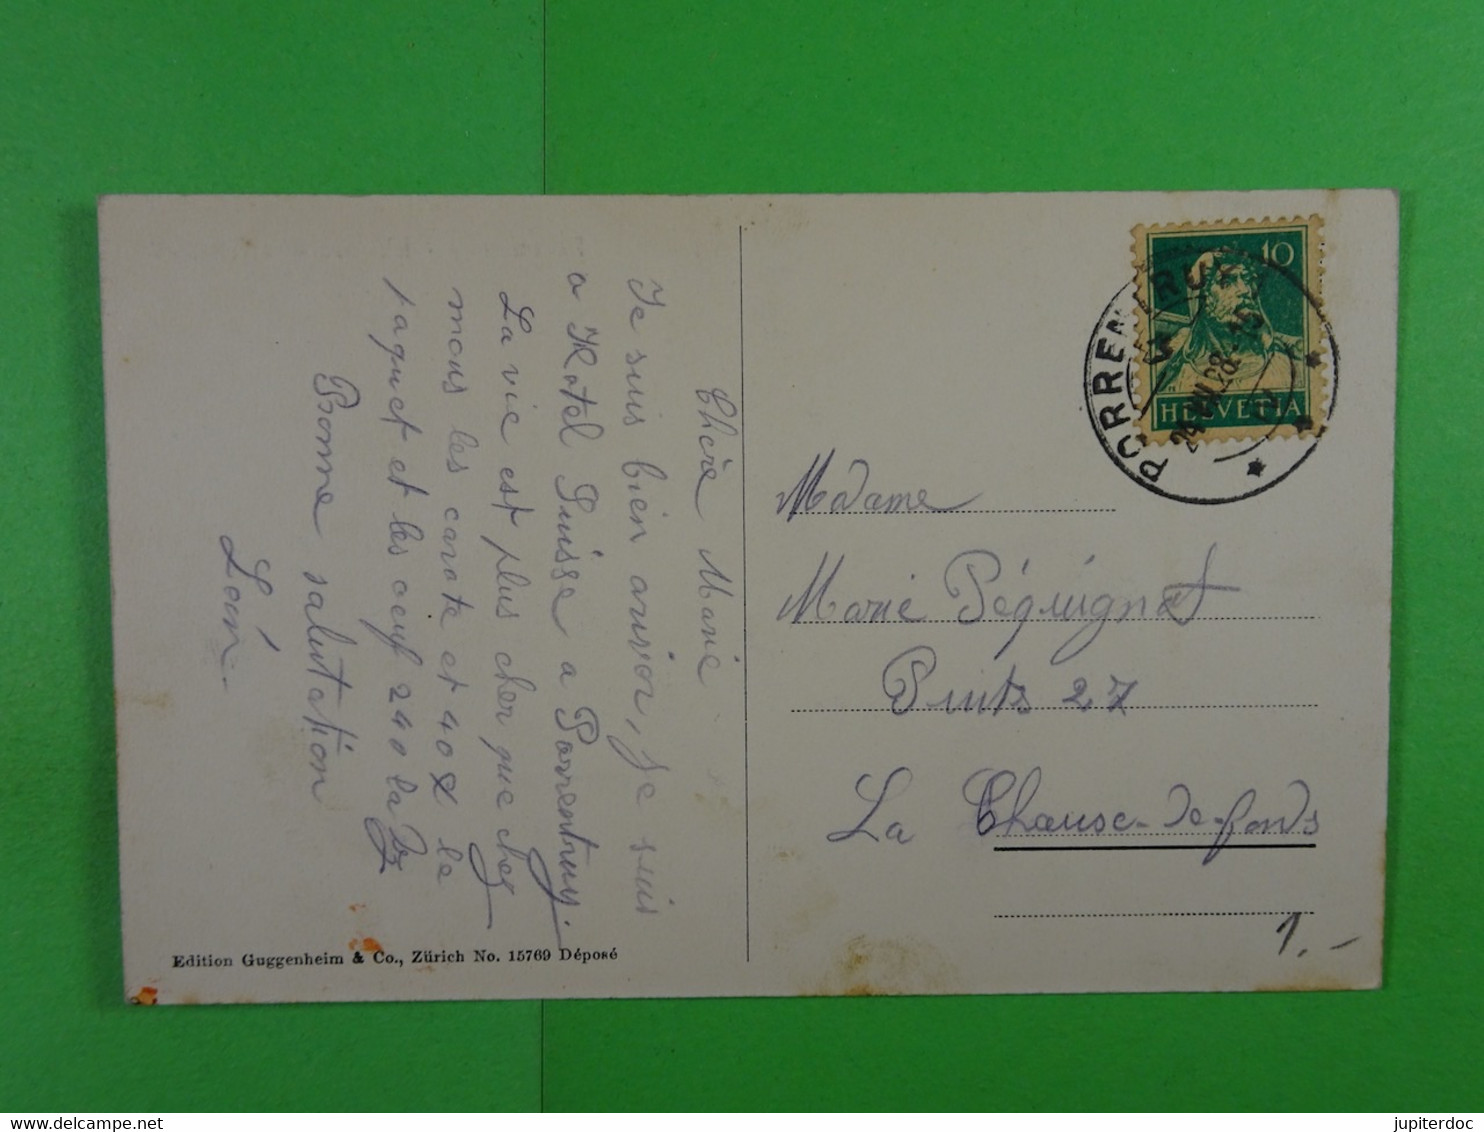 Chère Marie
Je suis bien arivor, je suis
a Hotel Suisse a Porrentruy.
La vie est plus cher que chez
mous les carote et 40 le
paquet et les oeuf 240 la Dz
Bonne salutation
Léon.
Edition Guggenheim & Co., Zürich No. 15769 Déposé
PORRENTRUY
24.VII.28.-19
10
HELVETIA
Madame
Marie Péquignat
Puits 27
La Chause-de-fonds
1.-
jupiterdoc
www.delcampe.net